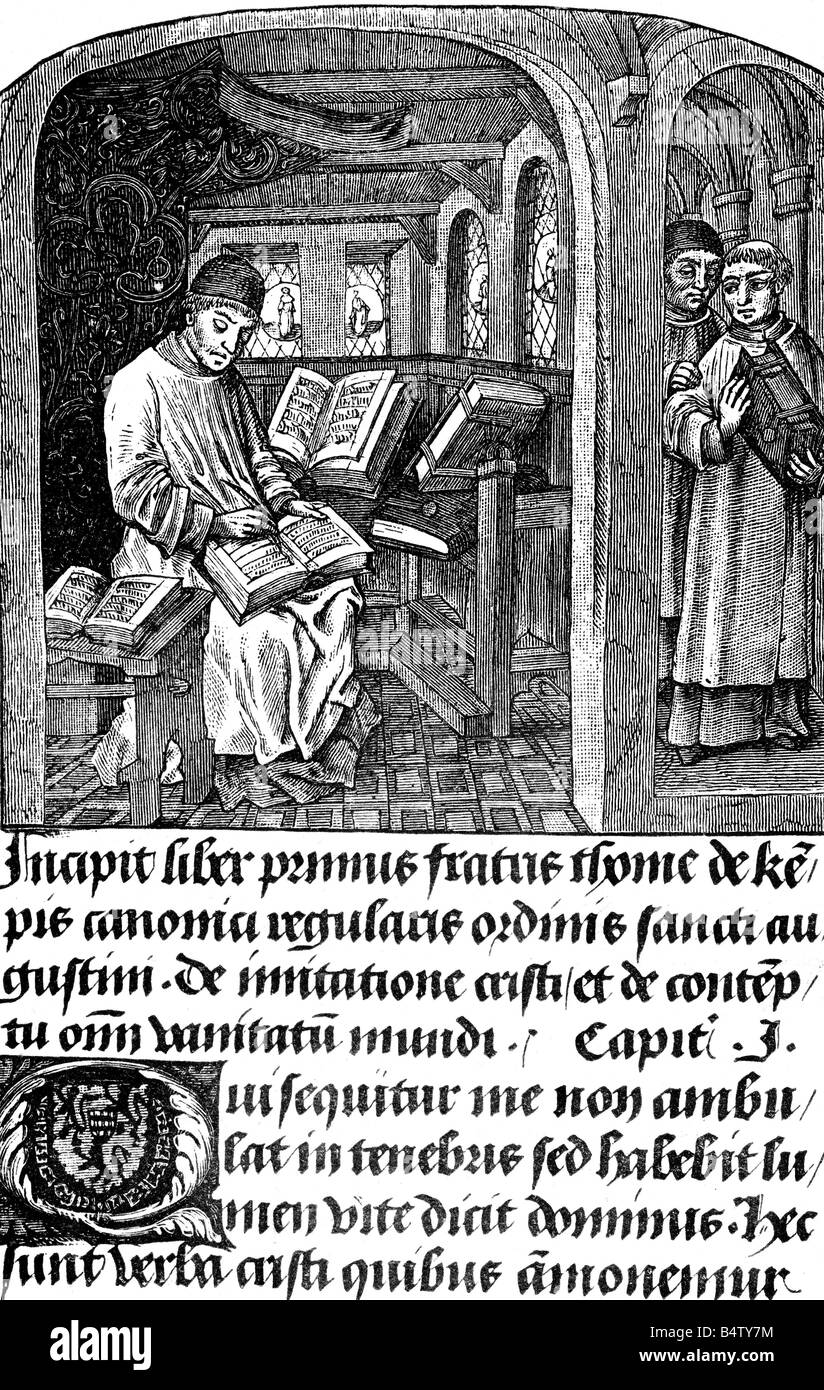 Incipit liber primus fratris thome de kē/
pis canonici regularis ordinis sancti au
gustini. De imitatione cristi/ et de contēp/
tu oīm vanitatū mundi. Capitˡ. I.
Qui sequitur me non ambu/
lat in tenebris sed habebit lu/
men vite dicit dominus. Hec
sunt verba cristi quibus āmonemur
a
alamy
a
alamy
a
alamy
Image ID: B4TY7M
www.alamy.com